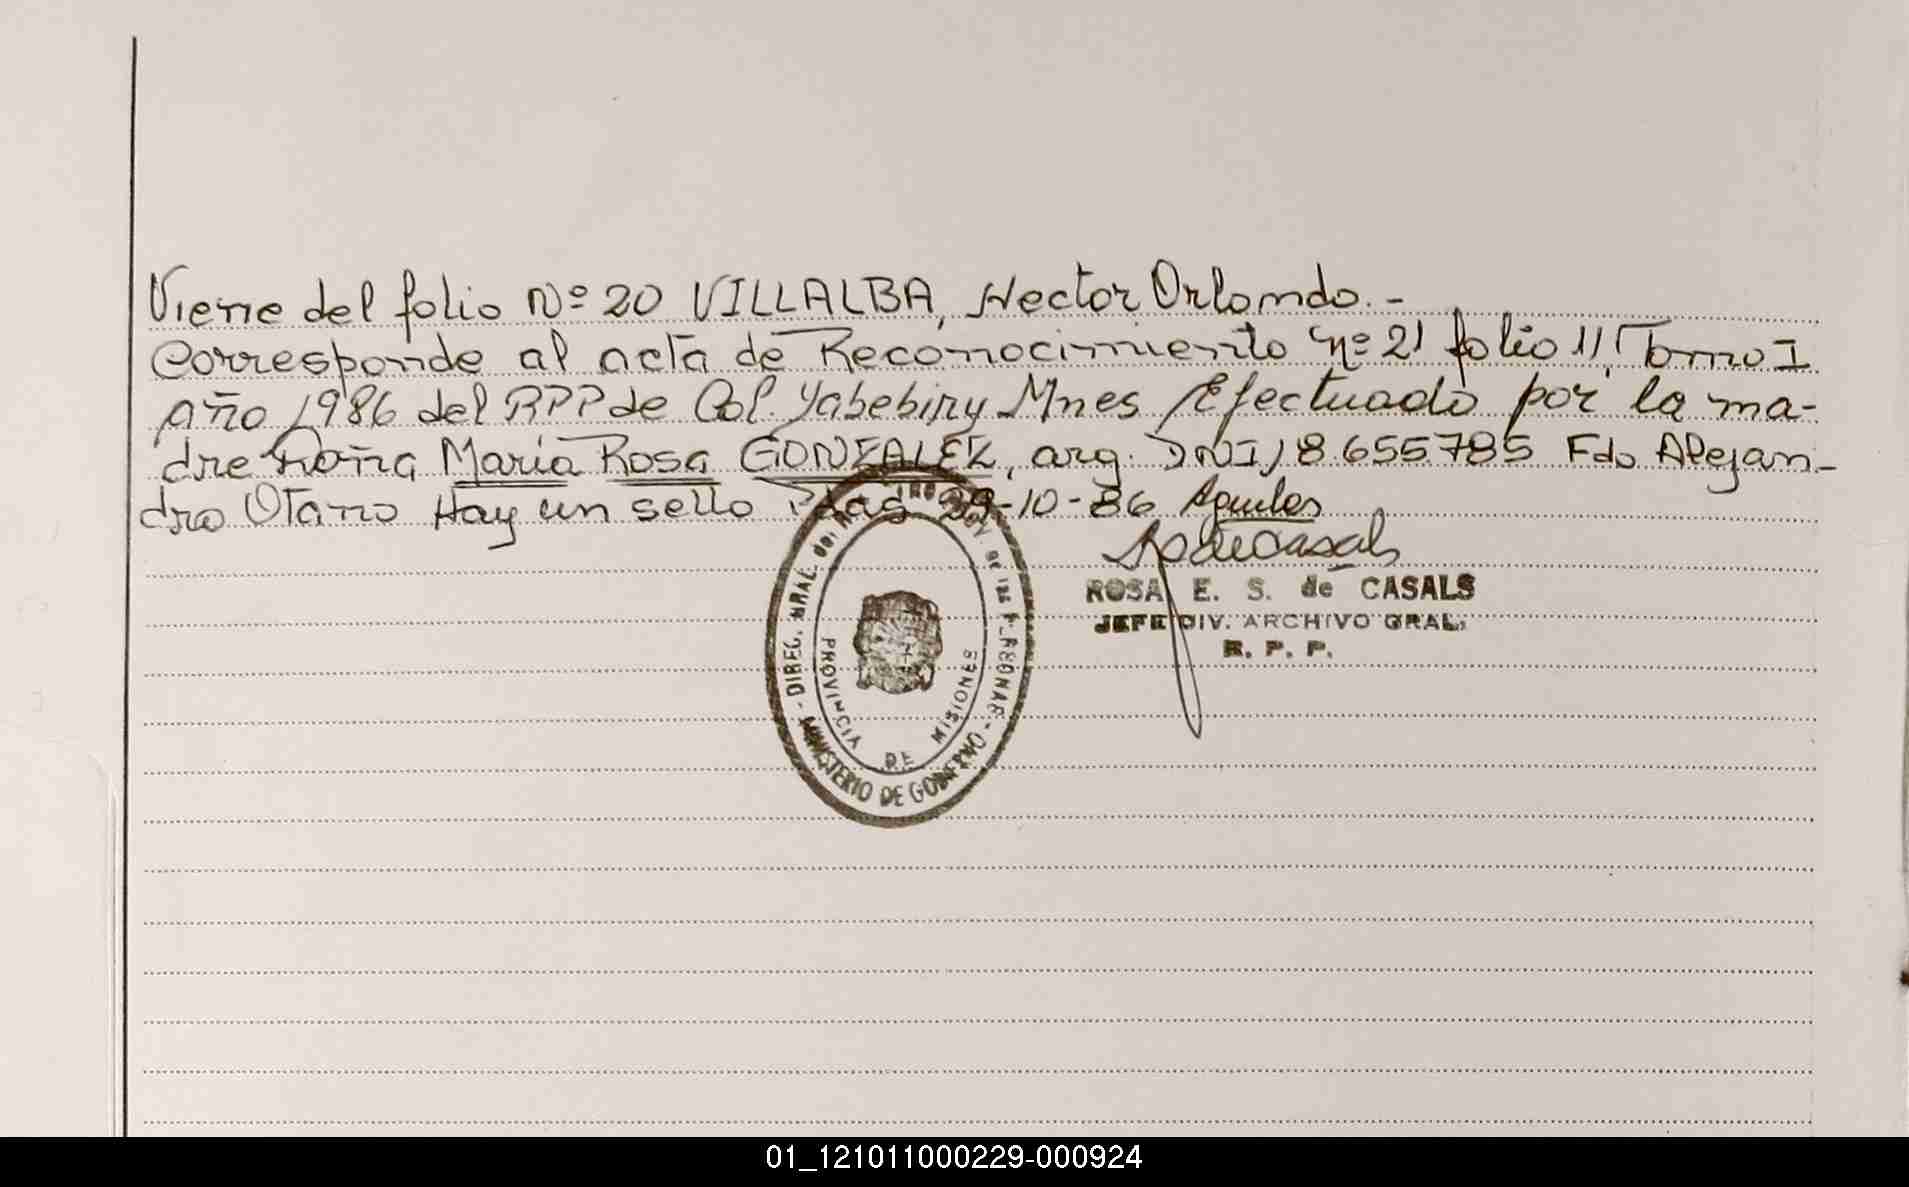 Viene del folio Nº 20 VILLALBA, Hector Orlando.-
Corresponde al acta de Reconocimiento nº 21 folio 11, Tomo I
Año 1986 del RPP de Col. Yabebiry Mnes Efectuado por la ma-
dre Doña María Rosa GONZALEZ, arg. DNI 18.655.785 Fdo Alejan-
dro Otano Hay un sello Pdas 29-10-86
ROSA E. S. de CASALS
JEFE DIV. ARCHIVO GRAL.
R. P. P.
DIREC. GRAL. del de las PERSONAS
PROVINCIA DE MISIONES
MINISTERIO DE GOBIERNO
01_121011000229-000924